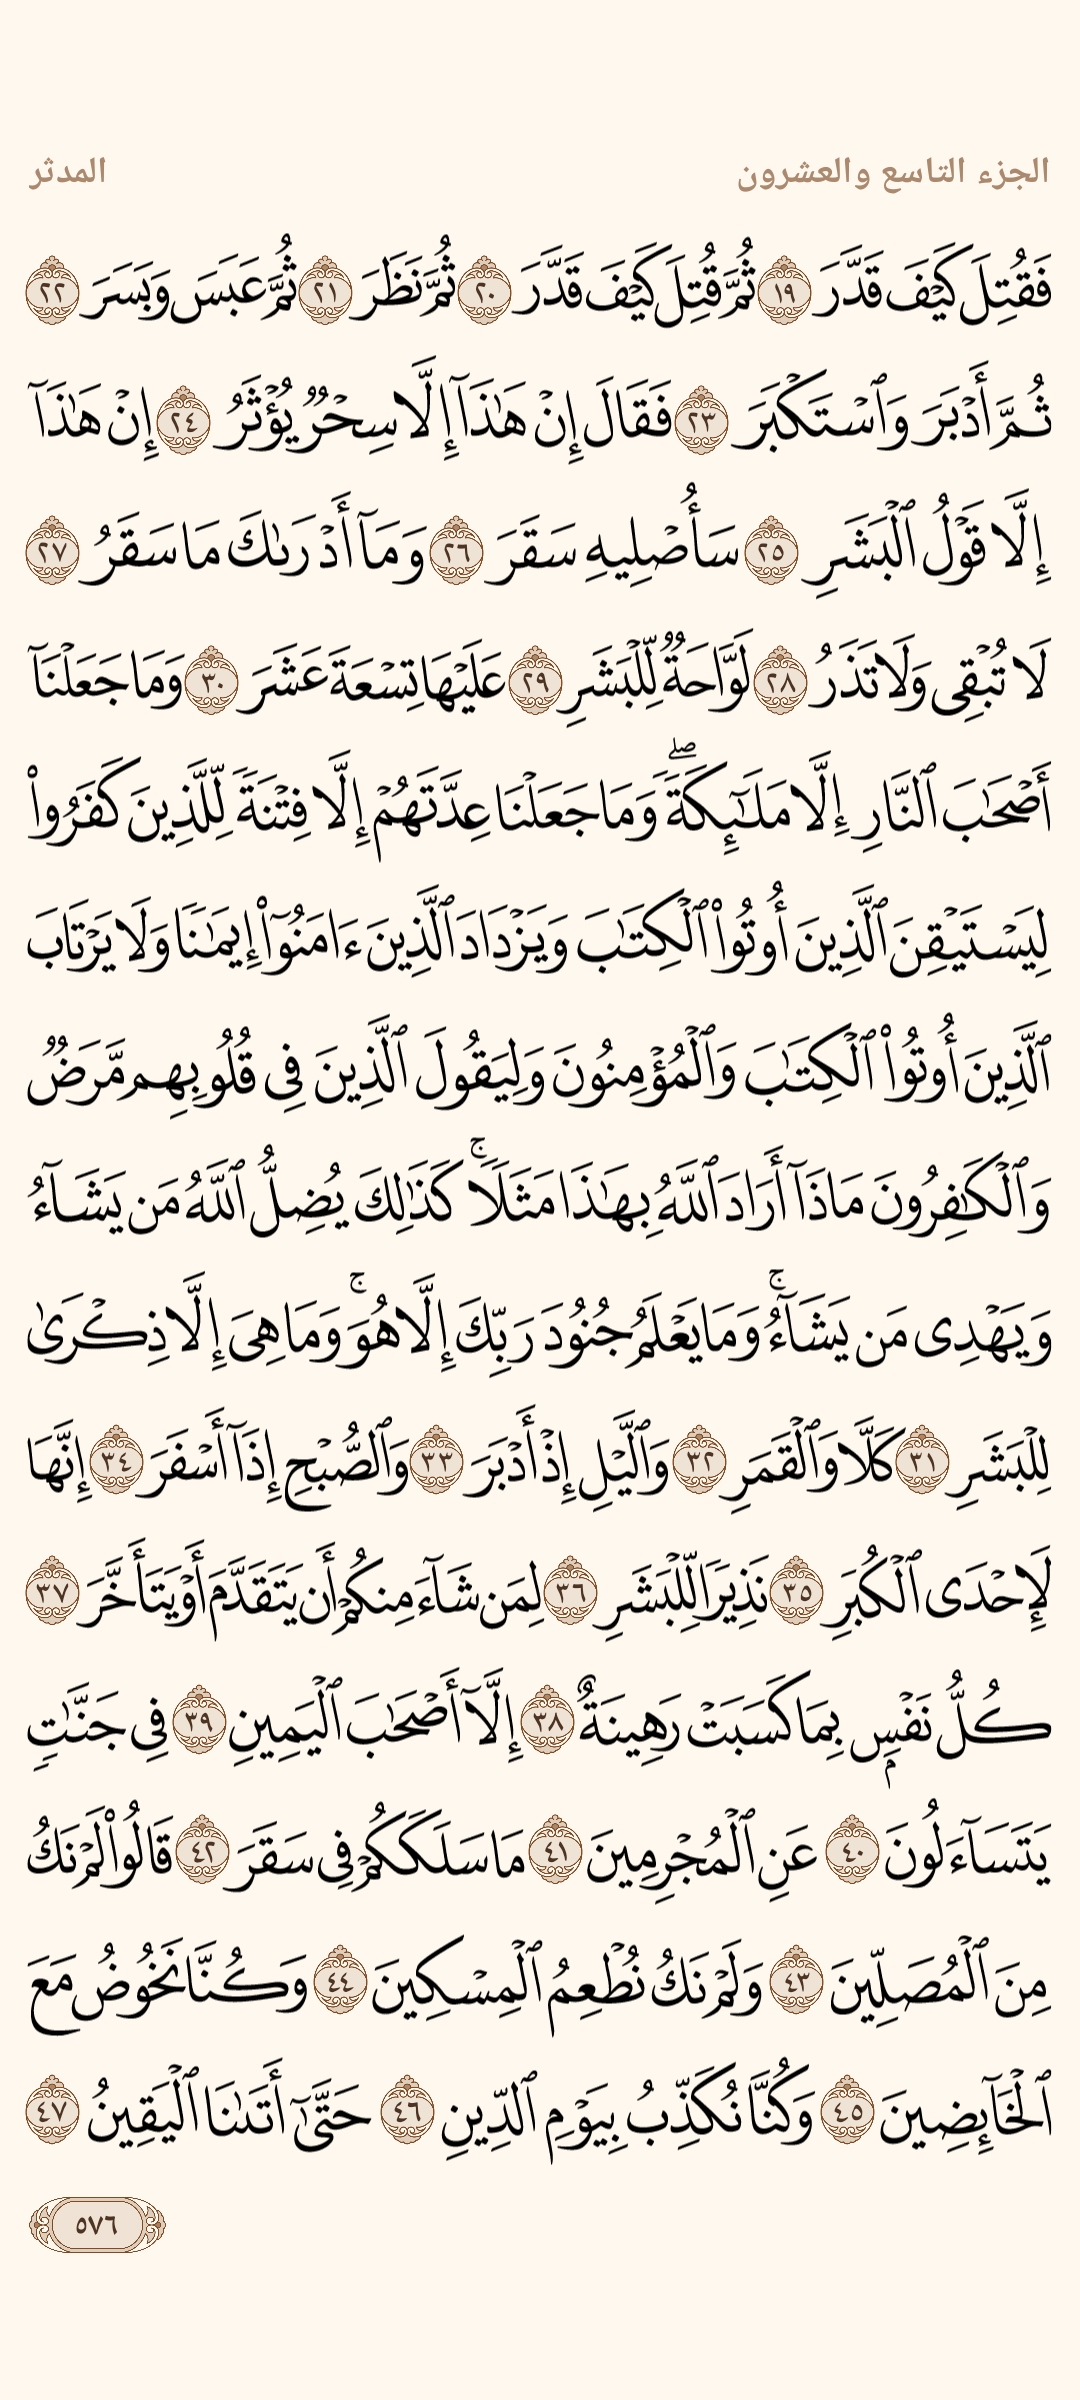 الجزء التاسع والعشرون
المدثر
فَقُتِلَ كَيْفَ قَدَّرَ ١٩ ثُمَّ قُتِلَ كَيْفَ قَدَّرَ ٢٠ ثُمَّ نَظَرَ ٢١ ثُمَّ عَبَسَ وَبَسَرَ ٢٢
ثُمَّ أَدْبَرَ وَٱسْتَكْبَرَ ٢٣ فَقَالَ إِنْ هَٰذَآ إِلَّا سِحْرٌ يُؤْثَرُ ٢٤ إِنْ هَٰذَآ
إِلَّا قَوْلُ ٱلْبَشَرِ ٢٥ سَأُصْلِيهِ سَقَرَ ٢٦ وَمَآ أَدْرَىٰكَ مَا سَقَرُ ٢٧
لَا تُبْقِى وَلَا تَذَرُ ٢٨ لَوَّاحَةٌ لِّلْبَشَرِ ٢٩ عَلَيْهَا تِسْعَةَ عَشَرَ ٣٠ وَمَا جَعَلْنَآ
أَصْحَٰبَ ٱلنَّارِ إِلَّا مَلَٰٓئِكَةً ۖ وَمَا جَعَلْنَا عِدَّتَهُمْ إِلَّا فِتْنَةً لِّلَّذِينَ كَفَرُوا۟
لِيَسْتَيْقِنَ ٱلَّذِينَ أُوتُوا۟ ٱلْكِتَٰبَ وَيَزْدَادَ ٱلَّذِينَ ءَامَنُوٓا۟ إِيمَٰنًا وَلَا يَرْتَابَ
ٱلَّذِينَ أُوتُوا۟ ٱلْكِتَٰبَ وَٱلْمُؤْمِنُونَ وَلِيَقُولَ ٱلَّذِينَ فِى قُلُوبِهِم مَّرَضٌ
وَٱلْكَٰفِرُونَ مَاذَآ أَرَادَ ٱللَّهُ بِهَٰذَا مَثَلًا ۚ كَذَٰلِكَ يُضِلُّ ٱللَّهُ مَن يَشَآءُ
وَيَهْدِى مَن يَشَآءُ ۚ وَمَا يَعْلَمُ جُنُودَ رَبِّكَ إِلَّا هُوَ ۚ وَمَا هِىَ إِلَّا ذِكْرَىٰ
لِلْبَشَرِ ٣١ كَلَّا وَٱلْقَمَرِ ٣٢ وَٱلَّيْلِ إِذْ أَدْبَرَ ٣٣ وَٱلصُّبْحِ إِذَآ أَسْفَرَ ٣٤ إِنَّهَا
لَإِحْدَى ٱلْكُبَرِ ٣٥ نَذِيرًا لِّلْبَشَرِ ٣٦ لِمَن شَآءَ مِنكُمْ أَن يَتَقَدَّمَ أَوْ يَتَأَخَّرَ ٣٧
كُلُّ نَفْسٍۭ بِمَا كَسَبَتْ رَهِينَةٌ ٣٨ إِلَّآ أَصْحَٰبَ ٱلْيَمِينِ ٣٩ فِى جَنَّٰتٍ
يَتَسَآءَلُونَ ٤٠ عَنِ ٱلْمُجْرِمِينَ ٤١ مَا سَلَكَكُمْ فِى سَقَرَ ٤٢ قَالُوا۟ لَمْ نَكُ
مِنَ ٱلْمُصَلِّينَ ٤٣ وَلَمْ نَكُ نُطْعِمُ ٱلْمِسْكِينَ ٤٤ وَكُنَّا نَخُوضُ مَعَ
ٱلْخَآئِضِينَ ٤٥ وَكُنَّا نُكَذِّبُ بِيَوْمِ ٱلدِّينِ ٤٦ حَتَّىٰٓ أَتَىٰنَا ٱلْيَقِينُ ٤٧
٥٧٦